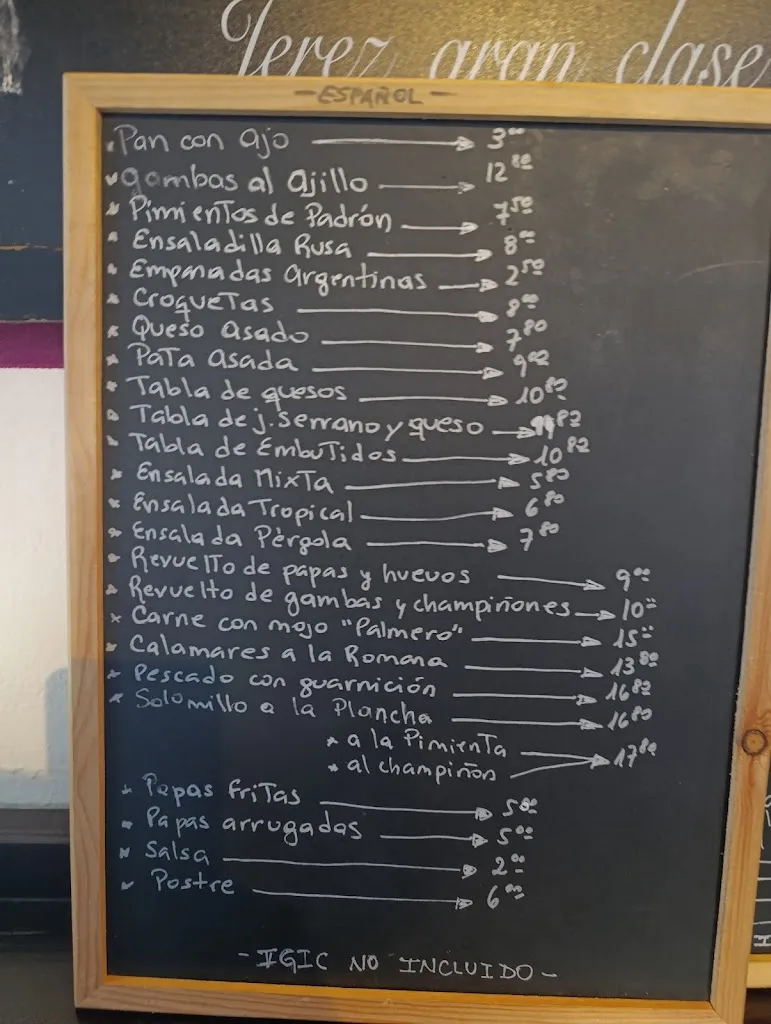 Jerez gran clase
- ESPAÑOL -
Pan con ajo → 3⁰⁰
gambas al ajillo → 12⁸⁰
Pimientos de Padrón → 7⁵⁰
Ensaladilla Rusa → 8⁰⁰
Empanadas Argentinas → 2⁵⁰
Croquetas → 8⁰⁰
Queso asado → 7⁸⁰
Pata asada → 9⁰⁰
Tabla de quesos → 10⁸⁰
Tabla de j. serrano y queso →
Tabla de Embutidos → 10⁸⁰
Ensalada Mixta → 5⁸⁰
Ensalada Tropical → 6⁸⁰
Ensalada Pérgola → 7⁸⁰
Revuelto de papas y huevos → 9⁰⁰
Revuelto de gambas y champiñones → 10⁼
Carne con mojo "Palmero" → 15⁼
Calamares a la Romana → 13⁸⁰
Pescado con guarnición → 16⁸⁰
Solomillo a la Plancha → 16⁸⁰
a la Pimienta → 17⁸⁰
al champiñon
Papas fritas → 5⁰⁰
Papas arrugadas → 5⁰⁰
Salsa → 2⁰⁰
Postre → 6⁰⁰
- IGIC NO INCLUIDO -